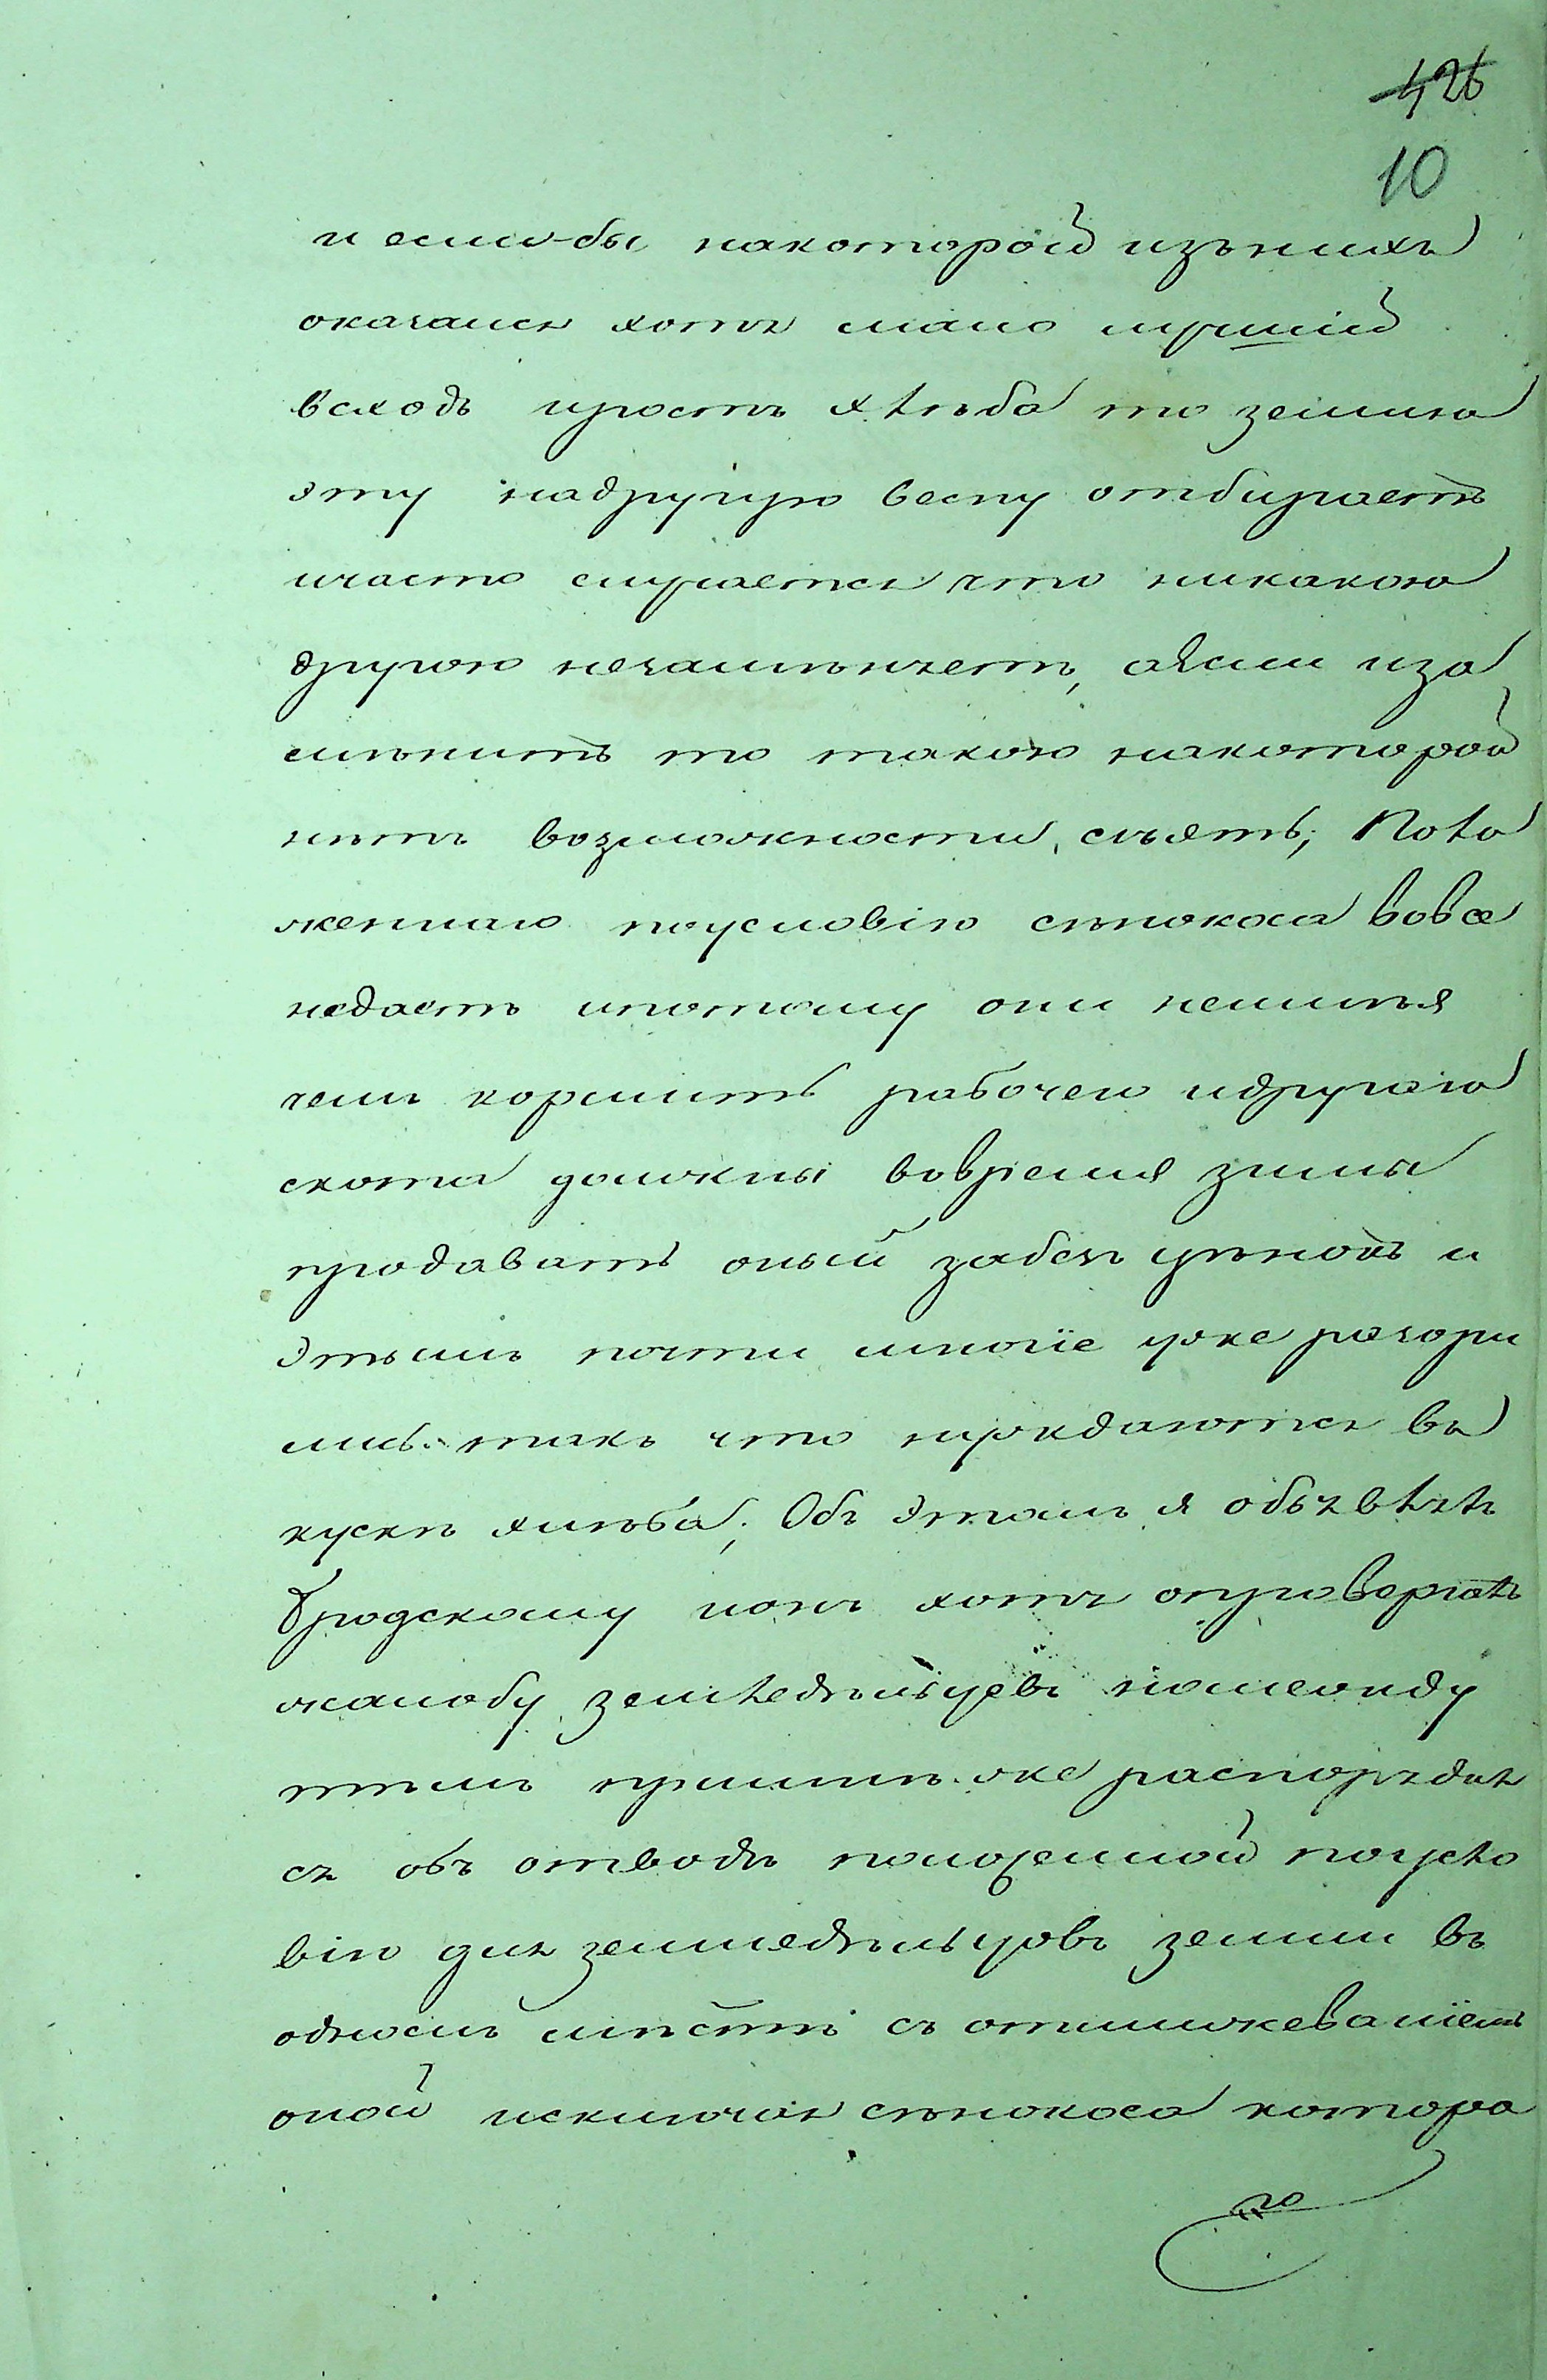 426
10
и если-бы накоторой изънихъ
оказался хотя мало лучшій
всходъ иростъ хлѣба то землю
эту надругую весну отбираетъ
ичасто случается что никакою
другою незамѣняетъ, аѣсли иза
мѣнитъ то такою накоторой
нѣтъ возможности, сѣять; Поло
женнаго поусловію сѣнокоса вовсе
недаетъ ипотому они неимѣя
чемъ кормить рабочего идругаго
скота должны вовремя зимы
продавать оный забезъ цѣнокъ и
Этымъ почти многіе уже разори
лись такъ что нуждаются въ
кускѣ хлѣба; Объ Этомъ я объявлялъ
Бродскому ионъ хотя опровергалъ
жалобу земледѣльцевъ номеонду
тѣмъ принялъ же распорядил
ся объ отводѣ положенной поусло
вію для земледѣльцовъ земли въ
одномъ мѣстѣ съ отмѣжеваніемъ
оной исключая сѣнокоса которо
го